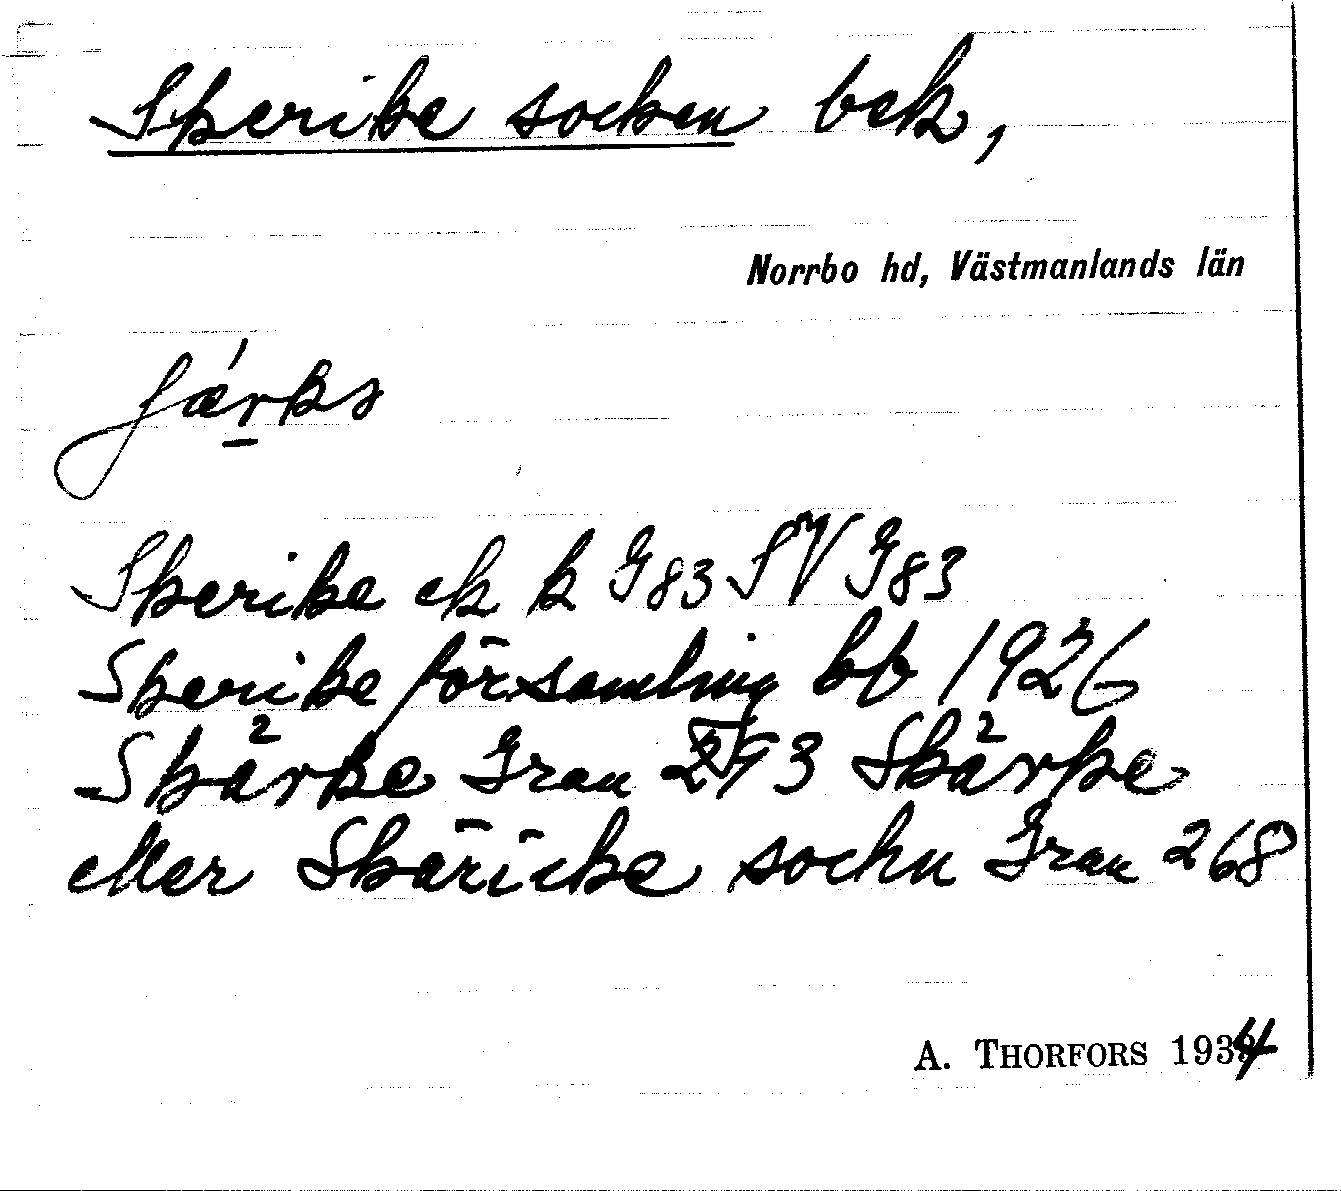 Skerike socken bek,
Norrbo hd, Västmanlands län
Skerike ek k G83 SV G83
Skerike församling bb 1926
Skärke Gran 293 Skärke
eller Skäricke sockn Gran 268
A. THORFORS 1934